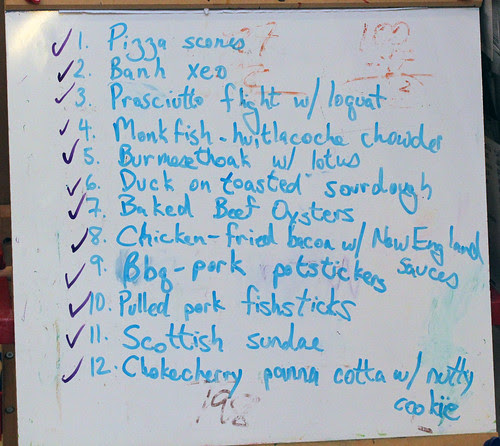 ✓ 1. Pizza scones
✓ 2. Banh xeo
✓ 3. Prosciutto flight w/ loquat
✓ 4. Monkfish-huitlacoche chowder
✓ 5. Burmese thoak w/ lotus
✓ 6. Duck on toasted sourdough
✓ 7. Baked Beef Oysters
✓ 8. Chicken-fried bacon w/ New England
sauces
✓ 9. Bbq-pork potstickers
✓ 10. Pulled pork fishsticks
✓ 11. Scottish sundae
✓ 12. Chokecherry panna cotta w/ nutty
cookie
198